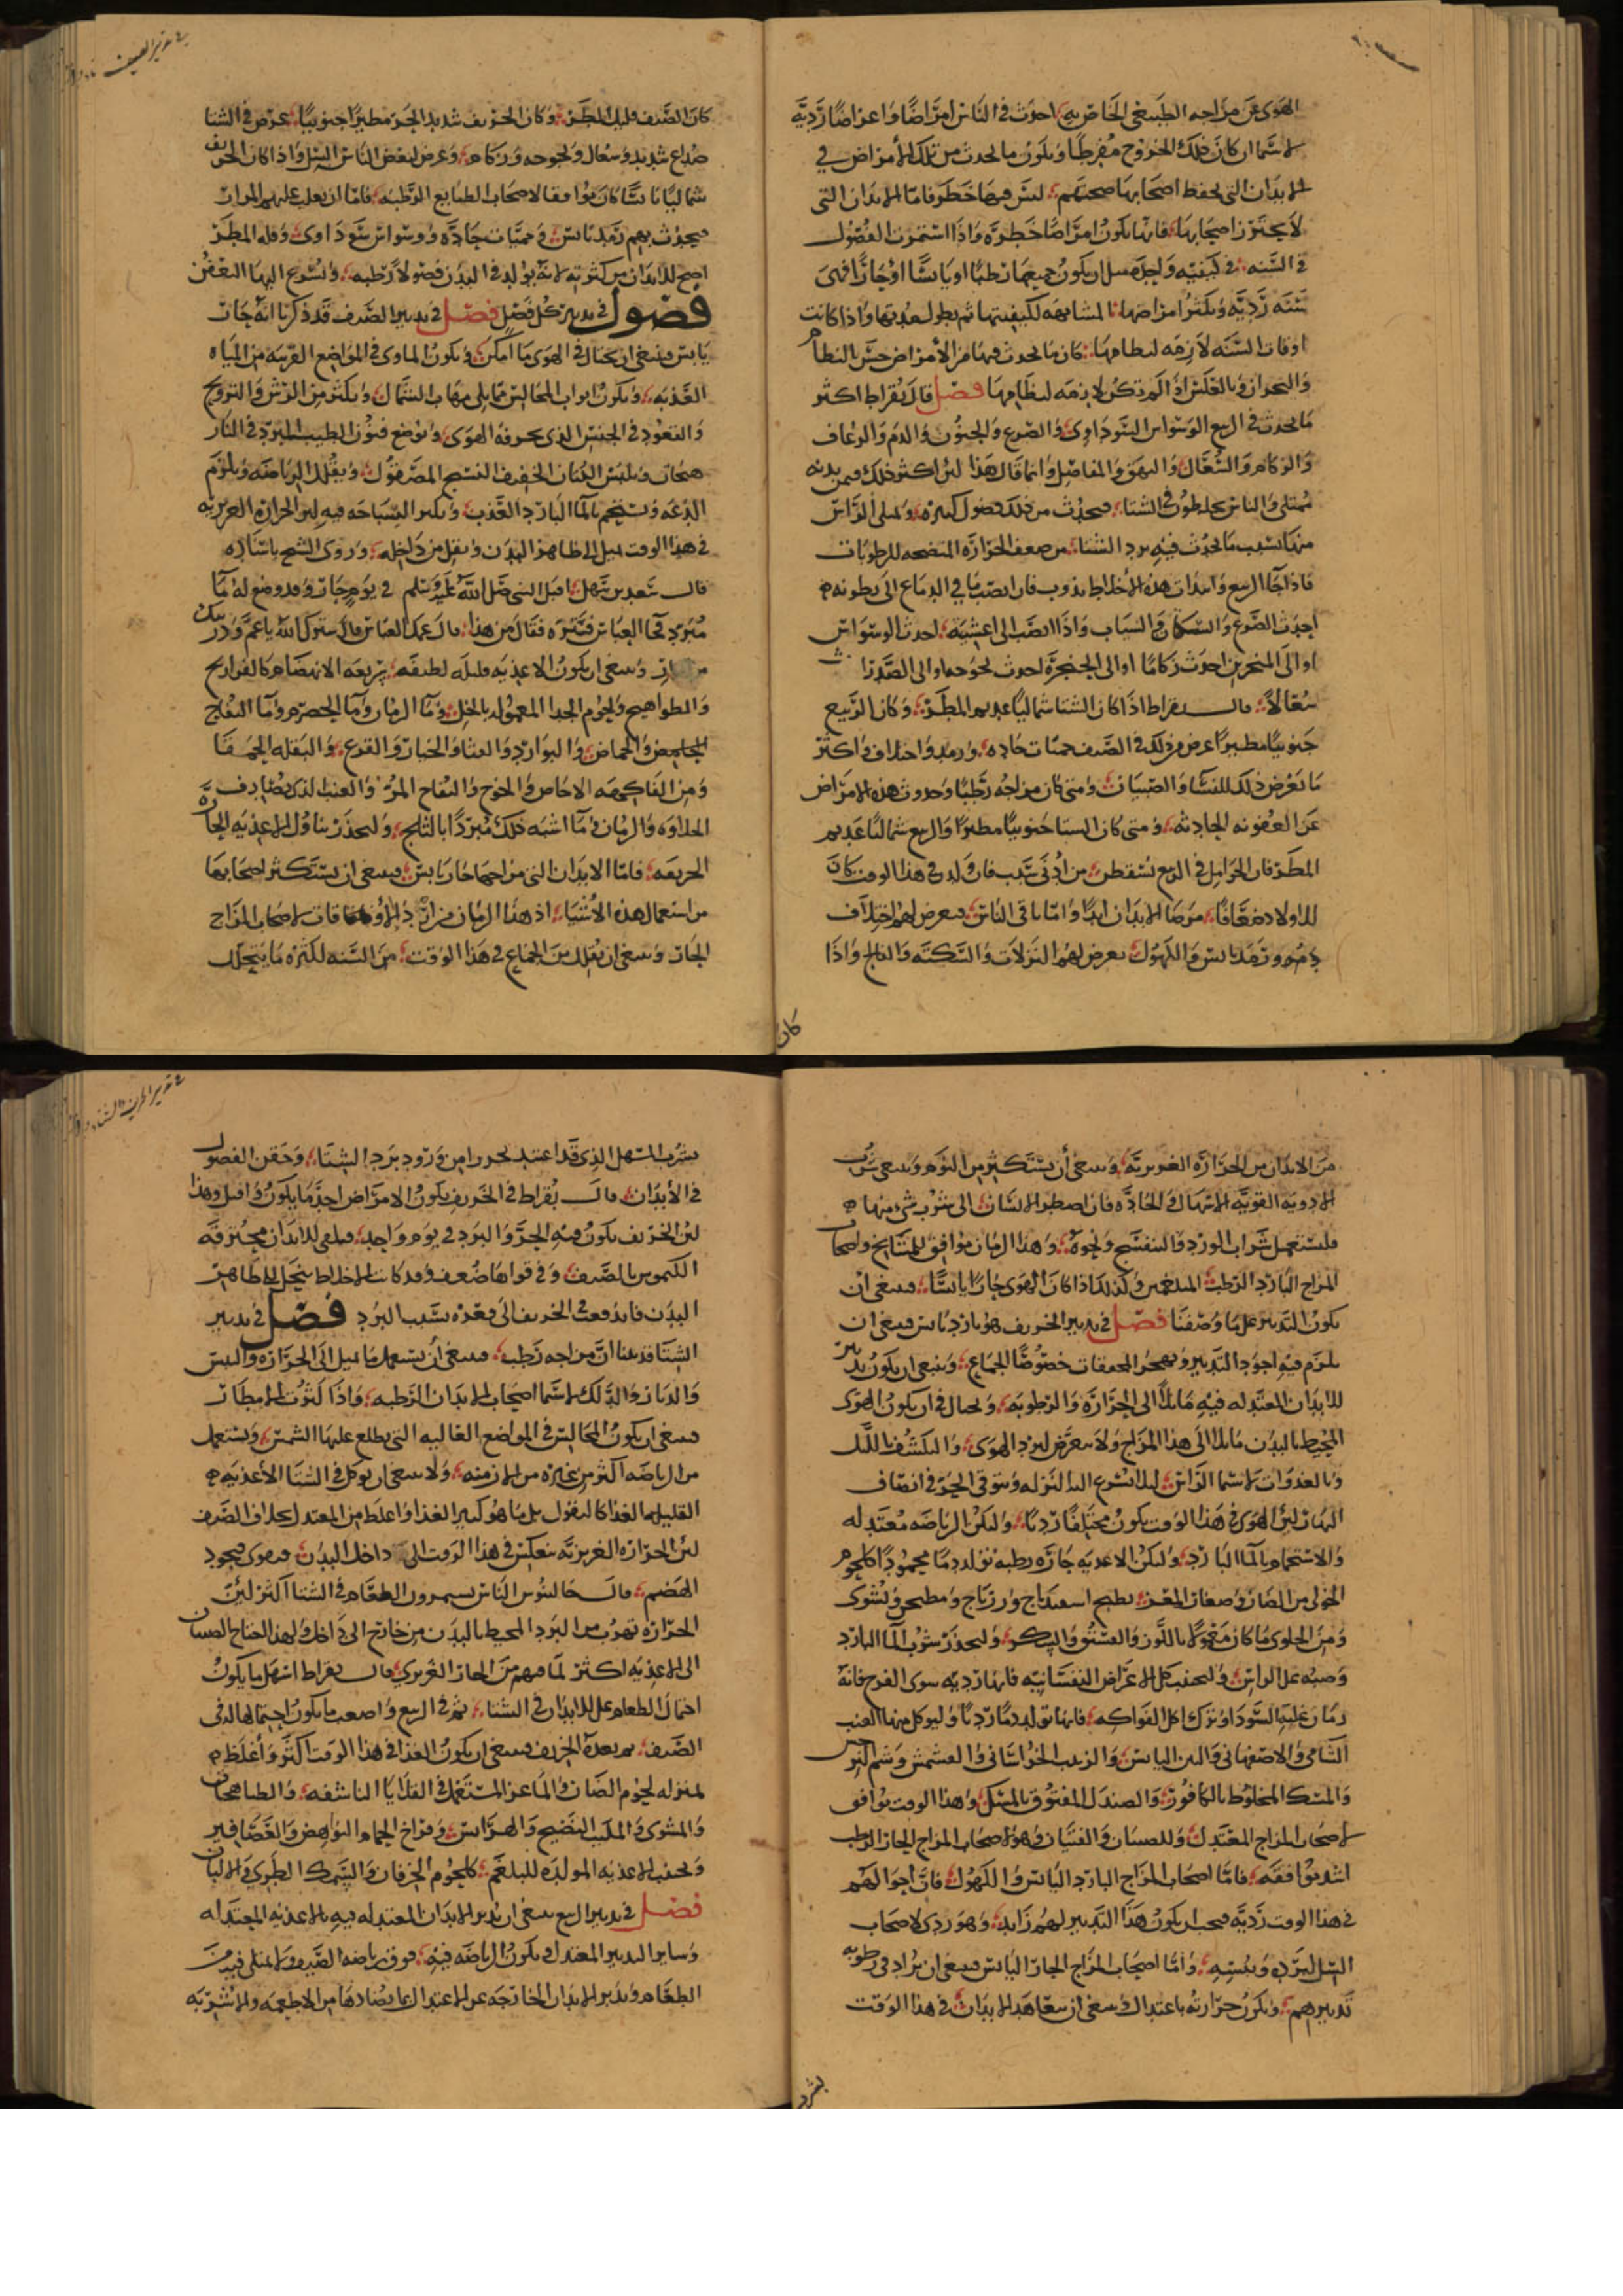 الهوى عن مزاجه الطبيعي الخاص به احدث في الناس امراضًا واعراضًا رديّه
لا سيما ان كان ذلك الخروج مفرطًا ويكون ما يحدث من تلك الأمراض في
الابدان التي يحفظ اصحابها صحتهم ليس فيها خطر فاما الابدان التي
لا يحترز اصحابها فانها يكون امراضها خطره واذا استمرت الفصول
في السنه في كيفيه واحده مثل ان يكون جميعها رطبًا او يابسًا او حارًا فهي
سنه رديّه ويكثر امراضها المشابهه لكيفيتها ثم يطول مدتها واذا كانت
اوقات السنه لازمه لنظامها كان ما يحدث فيها من الأمراض حسن النظام
والبحران وبالعكس اذا لم تكن لازمه لنظامها فصل قال بقراط اكثر
ما يحدث في الربيع الوسواس السوداوي والصرع والجنون والدم والرعاف
والزكام والسعال والبهق والمفاصل وانما قال هذا لان اكثر ذلك فيمن بدنه
ممتلي والناس يخلطون في الشتا فيحدث من ذلك فضول كثيره ويمتلي الراس
منها بسبب ما يحدث فيه برد الشتا من ضعف الحراره المنضجه للرطوبات
فاذا جا الربيع وابتدات هذه الأخلاط تذوب فان انصب ما في الدماغ الى بطونه
احدث الصرع والسكات والسبات واذا انصب الى اغشيته احدث الوسواس
او الى المنخرين احدث زكامًا او الى الحنجره احدث بحوحه او الى الصدر
سعالاً قال بقراط اذا كان الشتا شماليًا عديم المطر وكان الربيع
جنوبيًا مطيرًا عرض من ذلك في الصيف حميات حاده ورمد واختلاف واكثر
ما يعرض ذلك للنسا والصبيان ومن كان مزاجه رطبًا وحدوث هذه الامراض
عن العفونه الحادثه ومتى كان الشتا جنوبيًا مطيرًا والربيع شماليًا عديم
المطر فان الحوامل في الربيع يسقطن من أدنى سبب فان ولد في هذا الوقت كان
للاولاد ضعافًا مرضا الابدان ابدًا واما باقي الناس فيعرض لهم اختلاف
دم ورمد يابس والكهول يعرض لهم النزلات والسكته والفالج واذا
كان
في تدبير الصيف
كان الصيف قليل المطر وكان الخريف شديد الحر مطيرًا جنوبيًا عرض في الشتا
صداع شديد وسعال وبحوحه وزكام وعرض لبعض الناس السل واذا كان الخريف
شماليًا يابسًا كان موافقا لاصحاب الطبايع الرطبه فاما ان يغلب عليهم المرار
فيحدث بهم رمد يابس وحميات حاده ووسواس سوداوي وقله المطر
اصح للابدان من كثرته لانه يولد في البدن فضولاً رطبه ويسرع اليها التعفن
فصول في تدبير كل فصل فصل في تدبير الصيف قد ذكرنا انه حار
يابس فينبغي ان يحتال في الهوى ما امكن ويكون الماوى في المواضع القريبه من المياه
العذبه ويكون ابواب المجالس مما يلي مهاب الشمال ويكثر من الرش والترويح
والقعود في الخيش الذي يخرقه الهوى ويوضع فنون الطيب المبرد في الدار
ويلبس الكتان الخفيف النسج المصقول ويقلل الرياضه ويلزم
الدعه ويستحم بالما البارد العذب ويكثر السباحه فيه لان الحراره الغريزيه
في هذا الوقت تميل الى ظاهر البدن وتقل من داخله وروى الشيخ باسناده
قال سعد بن سهل اقبل النبي صلى الله عليه وسلم في يوم حار وقد وضع له ما
مبرد فجا العباس فستره فقال من هذا قال عمك العباس قال سترك الله يا عم وذريتك
من النار وينبغي ان يكون الاغذيه قليله لطيفه سريعه الانهضام كالفراريج
والطواهيج ولحوم الجدا المعموله بالخل وما الرمان وما الحصرم وما التفاح
الحامض والحماض والبوارد والقثا والخيار والقرع والبقله الحمقا
ومن الفاكهه الاجاص والخوخ والتفاح المز والعنب الذي يصادف
الحلاوه والرمان وما اشبه ذلك مبردًا بالثلج وليحذر تناول الاغذيه الحاره
الحريفه فاما الابدان التي مزاجها حار يابس فينبغي ان يستكثر اصحابها
من استعمال هذه الأشيا اذ هذا الزمان من اردا الاوقات لاصحاب المزاج
الحار وينبغي ان يقلل من الجماع في هذا الوقت من السنه لكثره ما يتحلل
من الابدان من الحراره الغريزيه وينبغي أن يستكثر من النوم وينبغي شرب
الادويه القويه الاسهال والحاده فان اضطر الانسان الى شرب شي منها
فليستعمل شراب الورد والبنفسج ونحوه وهذا الزمان موافق للمشايخ واصحاب
المزاج البارد الرطب البلغمي وكذلك اذا كان الهوى حارًا يابسًا فينبغي ان
يكون التدبير على ما وصفنا فصل في تدبير الخريف هو بارد يابس فينبغي ان
يلزم فيه اجود التدبير ويهجر المجففات خصوصًا الجماع وينبغي ان يكون تدبير
للابدان المعتدله فيه مايلاً الى الحراره والرطوبه ويحتال في ان يكون الهوى
المحيط بالبدن مايلا الى هذا المزاج ولا يتعرض لبرد الهوى والتكشف بالليل
وبالغدوات لا سيما الراس ليلا تسرع اليه النزله ويتوقى الحر في انصاف
النهار لان الهوى في هذا الوقت يكون مختلفًا رديًا ولتكن الرياضه معتدله
والاستحمام بالما البارد ولتكن الاغذيه حاره رطبه تولد دمًا محمودًا كلحوم
الحولي من الضان وصغار المعز يطبخ اسفيدباج وزرباج ومطجن ويشوى
ومن الحلوى ما كان معمولاً باللوز والفستق والسكر وليحذر شرب الما البارد
وصبه على الراس وليجتنب كل الاعراض النفسانيه فانها رديه سوى الفرح فانه
زمان غلبه السودا وترك اكل الفواكه فانها تولد دمًا رديًا وليوكل منها العنب
الشامي والاصفهاني والتين اليابس والزبيب الخراساني والمشمش وشم النرجس
والمسك المخلوط بالكافور والصندل المفتوق بالمسك وهذا الوقت يوافق
لاصحاب المزاج المعتدل وللصبيان والفتيان وهو لاصحاب المزاج الحار الرطب
اشد موافقه فاما اصحاب المزاج البارد اليابس والكهول فان احوالهم
في هذا الوقت رديه فيجب ان يكون هذا التدبير لهم زايد وهو ردي لاصحاب
السل لبرده ويبسه واما اصحاب المزاج الحار اليابس فينبغي ان يزاد في رطوبه
تدبيرهم ويكون حرارته باعتدال وينبغي ان يتعاهد الابدان في هذا الوقت
بشرب
بشرب المسهل الذي قد اعتيد حذرا من ورود برد الشتا وحقن الفضول
في الأبدان قال بقراط في الخريف يكون الامراض احد ما يكون واقتل وهذا
لان الخريف يكون فيه الحر والبرد في يوم واحد فيلقى للابدان محترقه
الكيموس بالصيف وفي قواها ضعف وقد كانت الاخلاط تنحل الى ظاهر
البدن فاندفعت في الخريف الى قعره بسبب البرد فصل في تدبير
الشتا قد بينا ان مزاجه رطب فينبغي أن يستعمل ما يميل الى الحراره واليبس
والدثار والدلك لا سيما اصحاب الابدان الرطبه واذا كثرت الامطار
فينبغي ان يكون المجالس في المواضع العاليه التي يطلع عليها الشمس ويستعمل
من الرياضه اكثر من غيره من الازمنه ولا ينبغي ان يوكل في الشتا الأغذيه
القليله الغذا كالبقول بل ما هو كثير الغذا واغلظ من المعتدل بخلاف الصيف
لان الحراره الغريزيه تنعكس في هذا الوقت الى داخل البدن فيقوى فيجود
الهضم قال جالينوس الناس يستمرون الطعام في الشتا اكثر لان
الحراره تهرب من البرد المحيط بالبدن من خارج الى داخل ولهذا احتاج الصبيان
الى الاغذيه اكثر لما فيهم من الحار الغريزي قال بقراط اسهل ما يكون
احتمال الطعام على الابدان في الشتا ثم في الربيع واصعب ما يكون احتمالها له في
الصيف ثم بعده الخريف فينبغي ان يكون الغذا في هذا الوقت اكثر واغلظ
بمنزله لحوم الضان والماعز المستعمل في القلايا الناشفه والطباهجات
والمشوي والملبن النضيج والهراس وفراخ الحمام النواهض والعصافير
ويجتنب الاغذيه المولده للبلغم كلحوم الخرفان والسمك الطري والالبان
فصل في تدبير الربيع ينبغي ان يدبر الابدان المعتدله فيه بالاغذيه المعتدله
وساير التدبير المعتدل ويكون الرياضه فيه فوق رياضه الصيف ولا يمتلي فيه من
الطعام ويدبر الابدان الخارجه عن الاعتدال بما يضادها من الاطعمه والاشربه